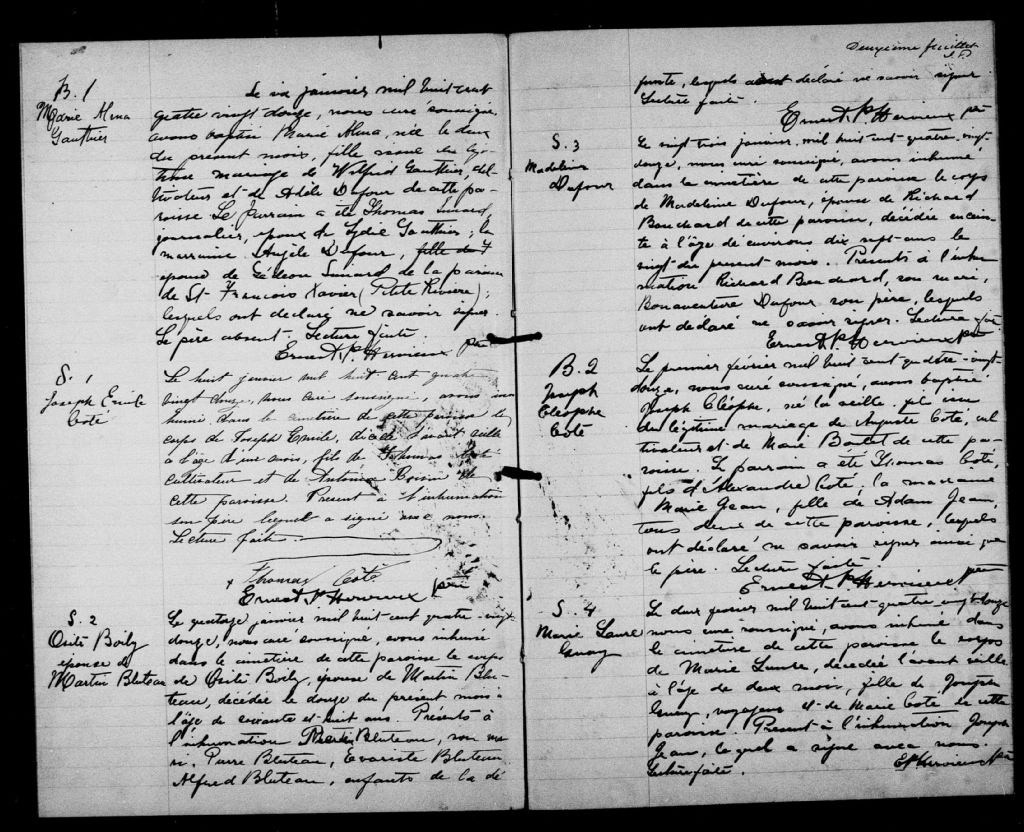 B. 1
Marie Alma
Gauthier
Le six janvier mil huit cent
quatre vingt douze, nous curé soussigné,
avons baptisé Marie Alma, née le deux
du présent mois, fille issue du légi-
time mariage de Wilfrid Gauthier, cul-
tivateur et de Adèle Dufour de cette pa-
roisse. Le parrain a été Thomas Simard,
journalier, époux de Lydie Gauthier; la
marraine Angèle Dufour, fille de
épouse de Gédéon Simard de la paroisse
de St François Xavier (Petite Rivière);
lesquels ont déclaré ne savoir signer.
Le père absent. Lecture faite.
Ernest P. Hervieux ptre
S. 1
Joseph Emile
Coté
Le huit janvier mil huit cent quatre
vingt douze, nous curé soussigné, avons in
humé dans le cimetière de cette paroisse le
corps de Joseph Emile, décédé l'avant veille
à l'âge d'un mois, fils de Thomas Coté
cultivateur et de Antonia Boivin de
cette paroisse. Présent à l'inhumation
son père lequel a signé avec nous.
Lecture faite.
+ Thomas Coté
Ernest P. Hervieux ptre
S. 2
Osité Boily
épouse de
Martin Bluteau
Le quatorze janvier mil huit cent quatre-vingt
douze, nous curé soussigné, avons inhumé
dans le cimetière de cette paroisse le corps
de Osité Boily, épouse de Martin Blu-
teau, décédée le douze du présent mois à
l'âge de soixante et huit ans. Présents à
l'inhumation Bluteau, son ma
ri, Pierre Bluteau, Evariste Bluteau
Alfred Bluteau, enfants de la dé
Deuxième feuillet
funte, lesquels déclaré ne savoir signer
Lecture faite.
Ernest P. Hervieux ptre
S. 3
Madeleine
Dufour
Le vingt trois janvier, mil huit cent quatre-vingt
douze, nous curé soussigné, avons inhumé
dans le cimetière de cette paroisse le corps
de Madeleine Dufour, épouse de Richard
Bouchard de cette paroisse, décédée encein-
te à l'âge d'environs dix sept ans le
vingt du présent mois. Présents à l'inhu
mation Richard Bouchard, son mari,
Bonaventure Dufour son père, lesquels
ont déclaré ne savoir signer. Lecture faite
Ernest P. Hervieux ptre
B. 2
Joseph
Cléophe
Coté
Le premier février mil huit cent quatre-vingt-
douze, nous curé soussigné, avons baptisé
Joseph Cléophe, né la veille, fils issu
du légitime mariage de Auguste Coté, cul
tivateur et de Marie Boutet de cette pa-
roisse. Le parrain a été Thomas Coté,
fils d'Alexandre Coté, la marraine
Marie Jean, fille de Adam Jean,
tous deux de cette paroisse, lesquels
ont déclaré ne savoir signer ainsi que
le père. Lecture faite
Ernest P. Hervieux ptre
S. 4
Marie Laure
Guay
Le deux février mil huit cent quatre vingt douze
nous curé soussigné, avons inhumé dans
le cimetière de cette paroisse le corps
de Marie Laure, décédée l'avant veille
à l'âge de deux mois, fille de Joseph
Guay, voyageur et de Marie Coté de cette
paroisse. Présent à l'inhumation Joseph
Jean, lequel a signé avec nous.
Lecture faite.
EP Hervieux Ptre